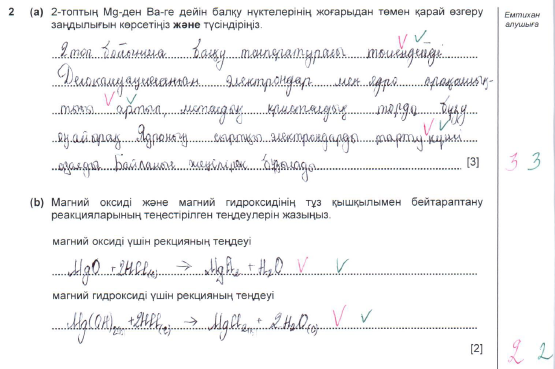 2 (a) 2-топтың Mg-ден Ba-ге дейін балқу нүктелерінің жоғарыдан төмен қарай өзгеру
Емтихан
алушыға
заңдылығын көрсетіңіз және түсіндіріңіз.
2 топ бойынша балқу температурасы төмендейді
Делокализацияланған электрондар мен ядро арақашық-
тығы артып, металдың кристалдық торды бұзу
оңайырақ Ядроның сыртқы электрондарды тарту күші
азаяды Байланыс жеңілірек бұзылады
[3]
3 3
(b) Магний оксиді және магний гидроксидінің тұз қышқылымен бейтараптану
реакцияларының теңестірілген теңдеулерін жазыңыз.
магний оксиді үшін рекцияның теңдеуі
MgO + 2HCl → MgCl2 + H2O
магний гидроксиді үшін рекцияның теңдеуі
Mg(OH)2 + 2HCl → MgCl2 + 2H2O
[2]
2 2